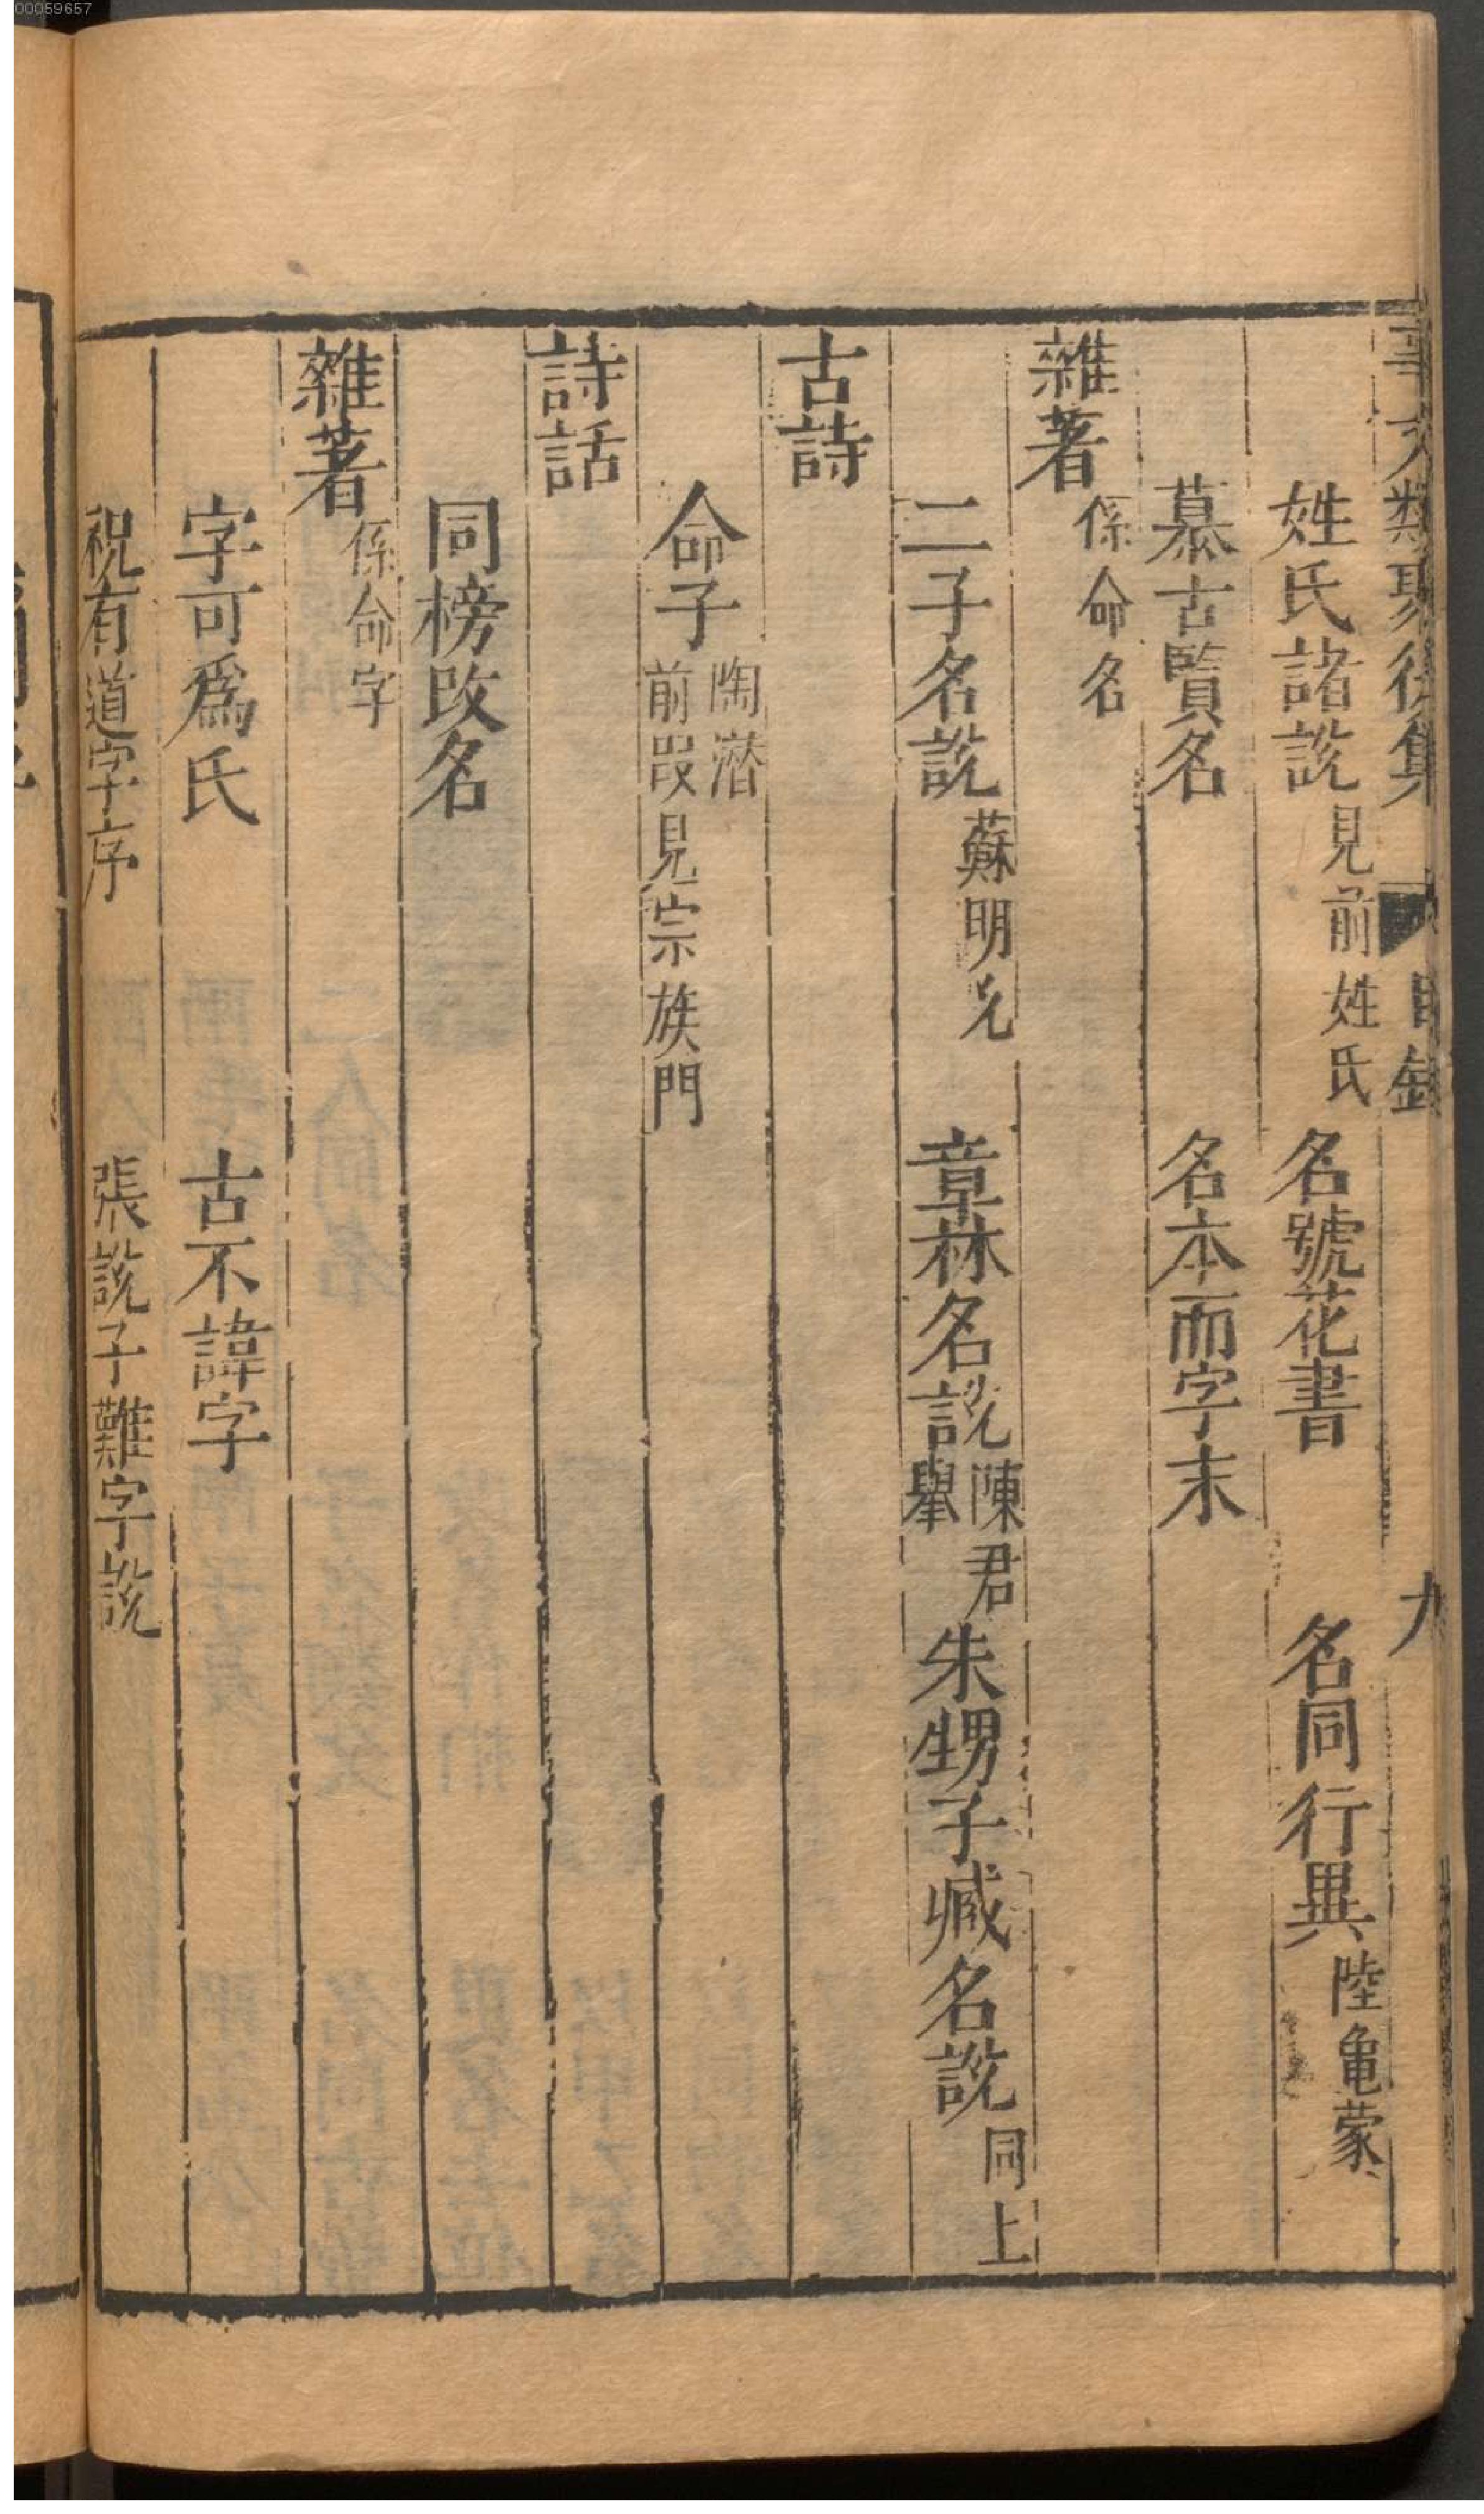 00059657
事文類聚後集 目錄 九
姓氏諸說見前姓氏 名號花書 名同行異陸龜蒙
慕古賢名 名本而字末
雜著係命名
二子名說蘇明允 章林名說陳君舉 朱甥子臧名說同上
古詩
命子陶潛前段見宗族門
詩話
同榜改名
雜著係命字
字可爲氏 古不諱字
祝有道字序 張說子難字說